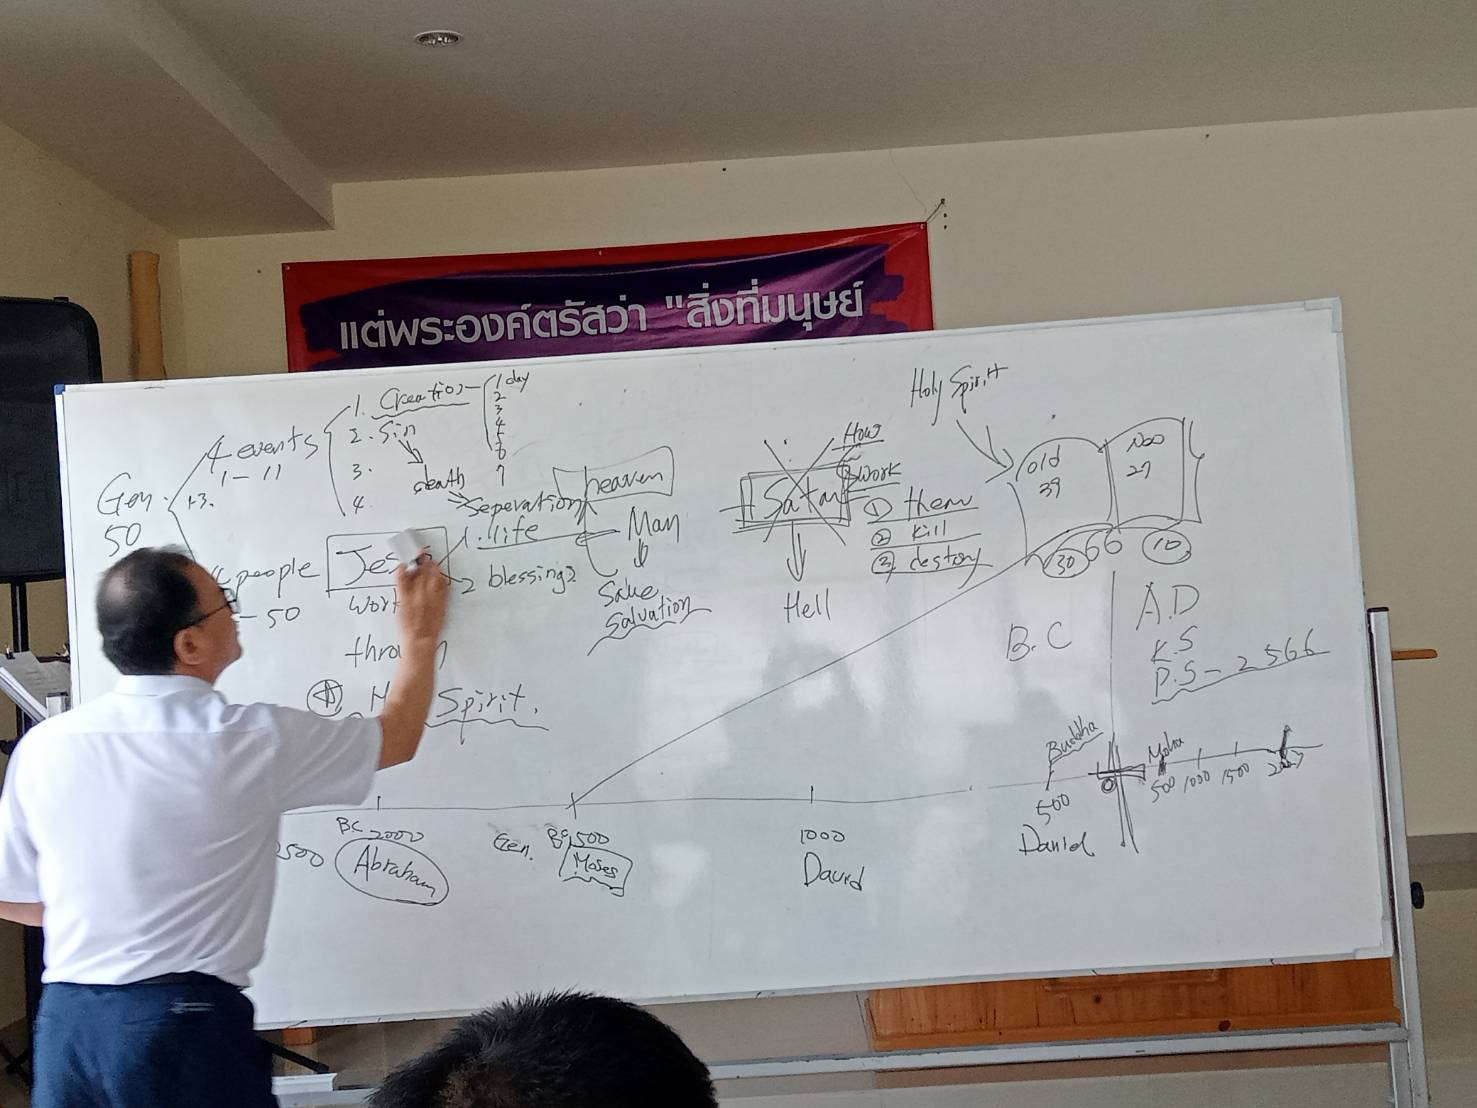 แต่พระองค์ตรัสว่า "สิ่งที่มนุษย์
Gen.
50
4 events
1-11
1. Creation
1 day
2
3
4
5
6
7
2. Sin
3.
4.
death
Seperation
heaven
1. life
2 blessing
Man
Save
Salvation
people
- 50
Jes
work
through
Spirit.
Satan
Hell
How
work
① them
② kill
③ destory
Holy Spirit
old
39
27
30
66
10
B.C
A.D
K.S
P.S - 2566
Buddha
500
Daniel
0
500
1000
1500
BC 2000
Abraham
Gen.
BC 1500
Moses
1000
David